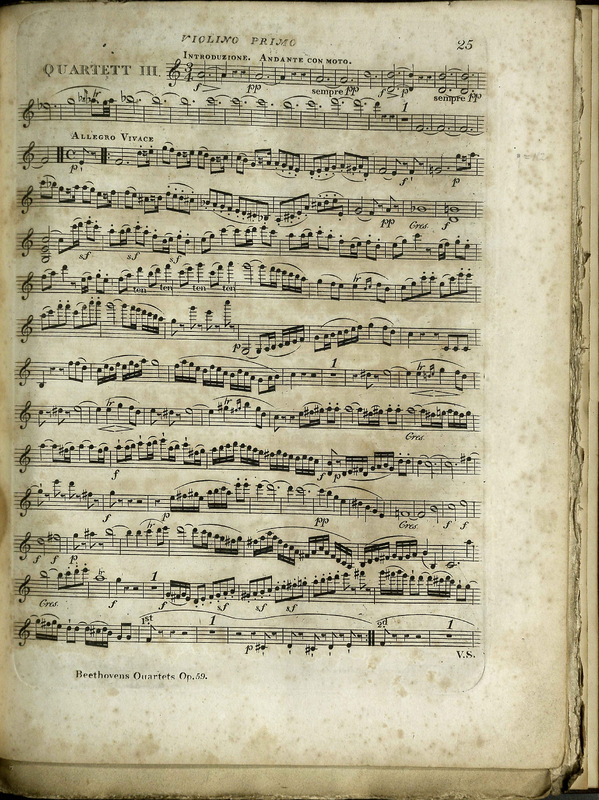 VIOLINO PRIMO
25
INTRODUZIONE. ANDANTE CON MOTO.
QUARTETT III.
f pp sempre pp f p sempre pp
1
ALLEGRO VIVACE
p f p
pp Cres. f
sf sf sf
ten ten ten ten tr
p
1 tr
tr tr
Cres.
f f p
f p pp Cres. f f
f f p tr
Cres. f 1 f sf sf sf
1st 1 p 2d 1
V.S.
Beethovens Quartets Op.59.